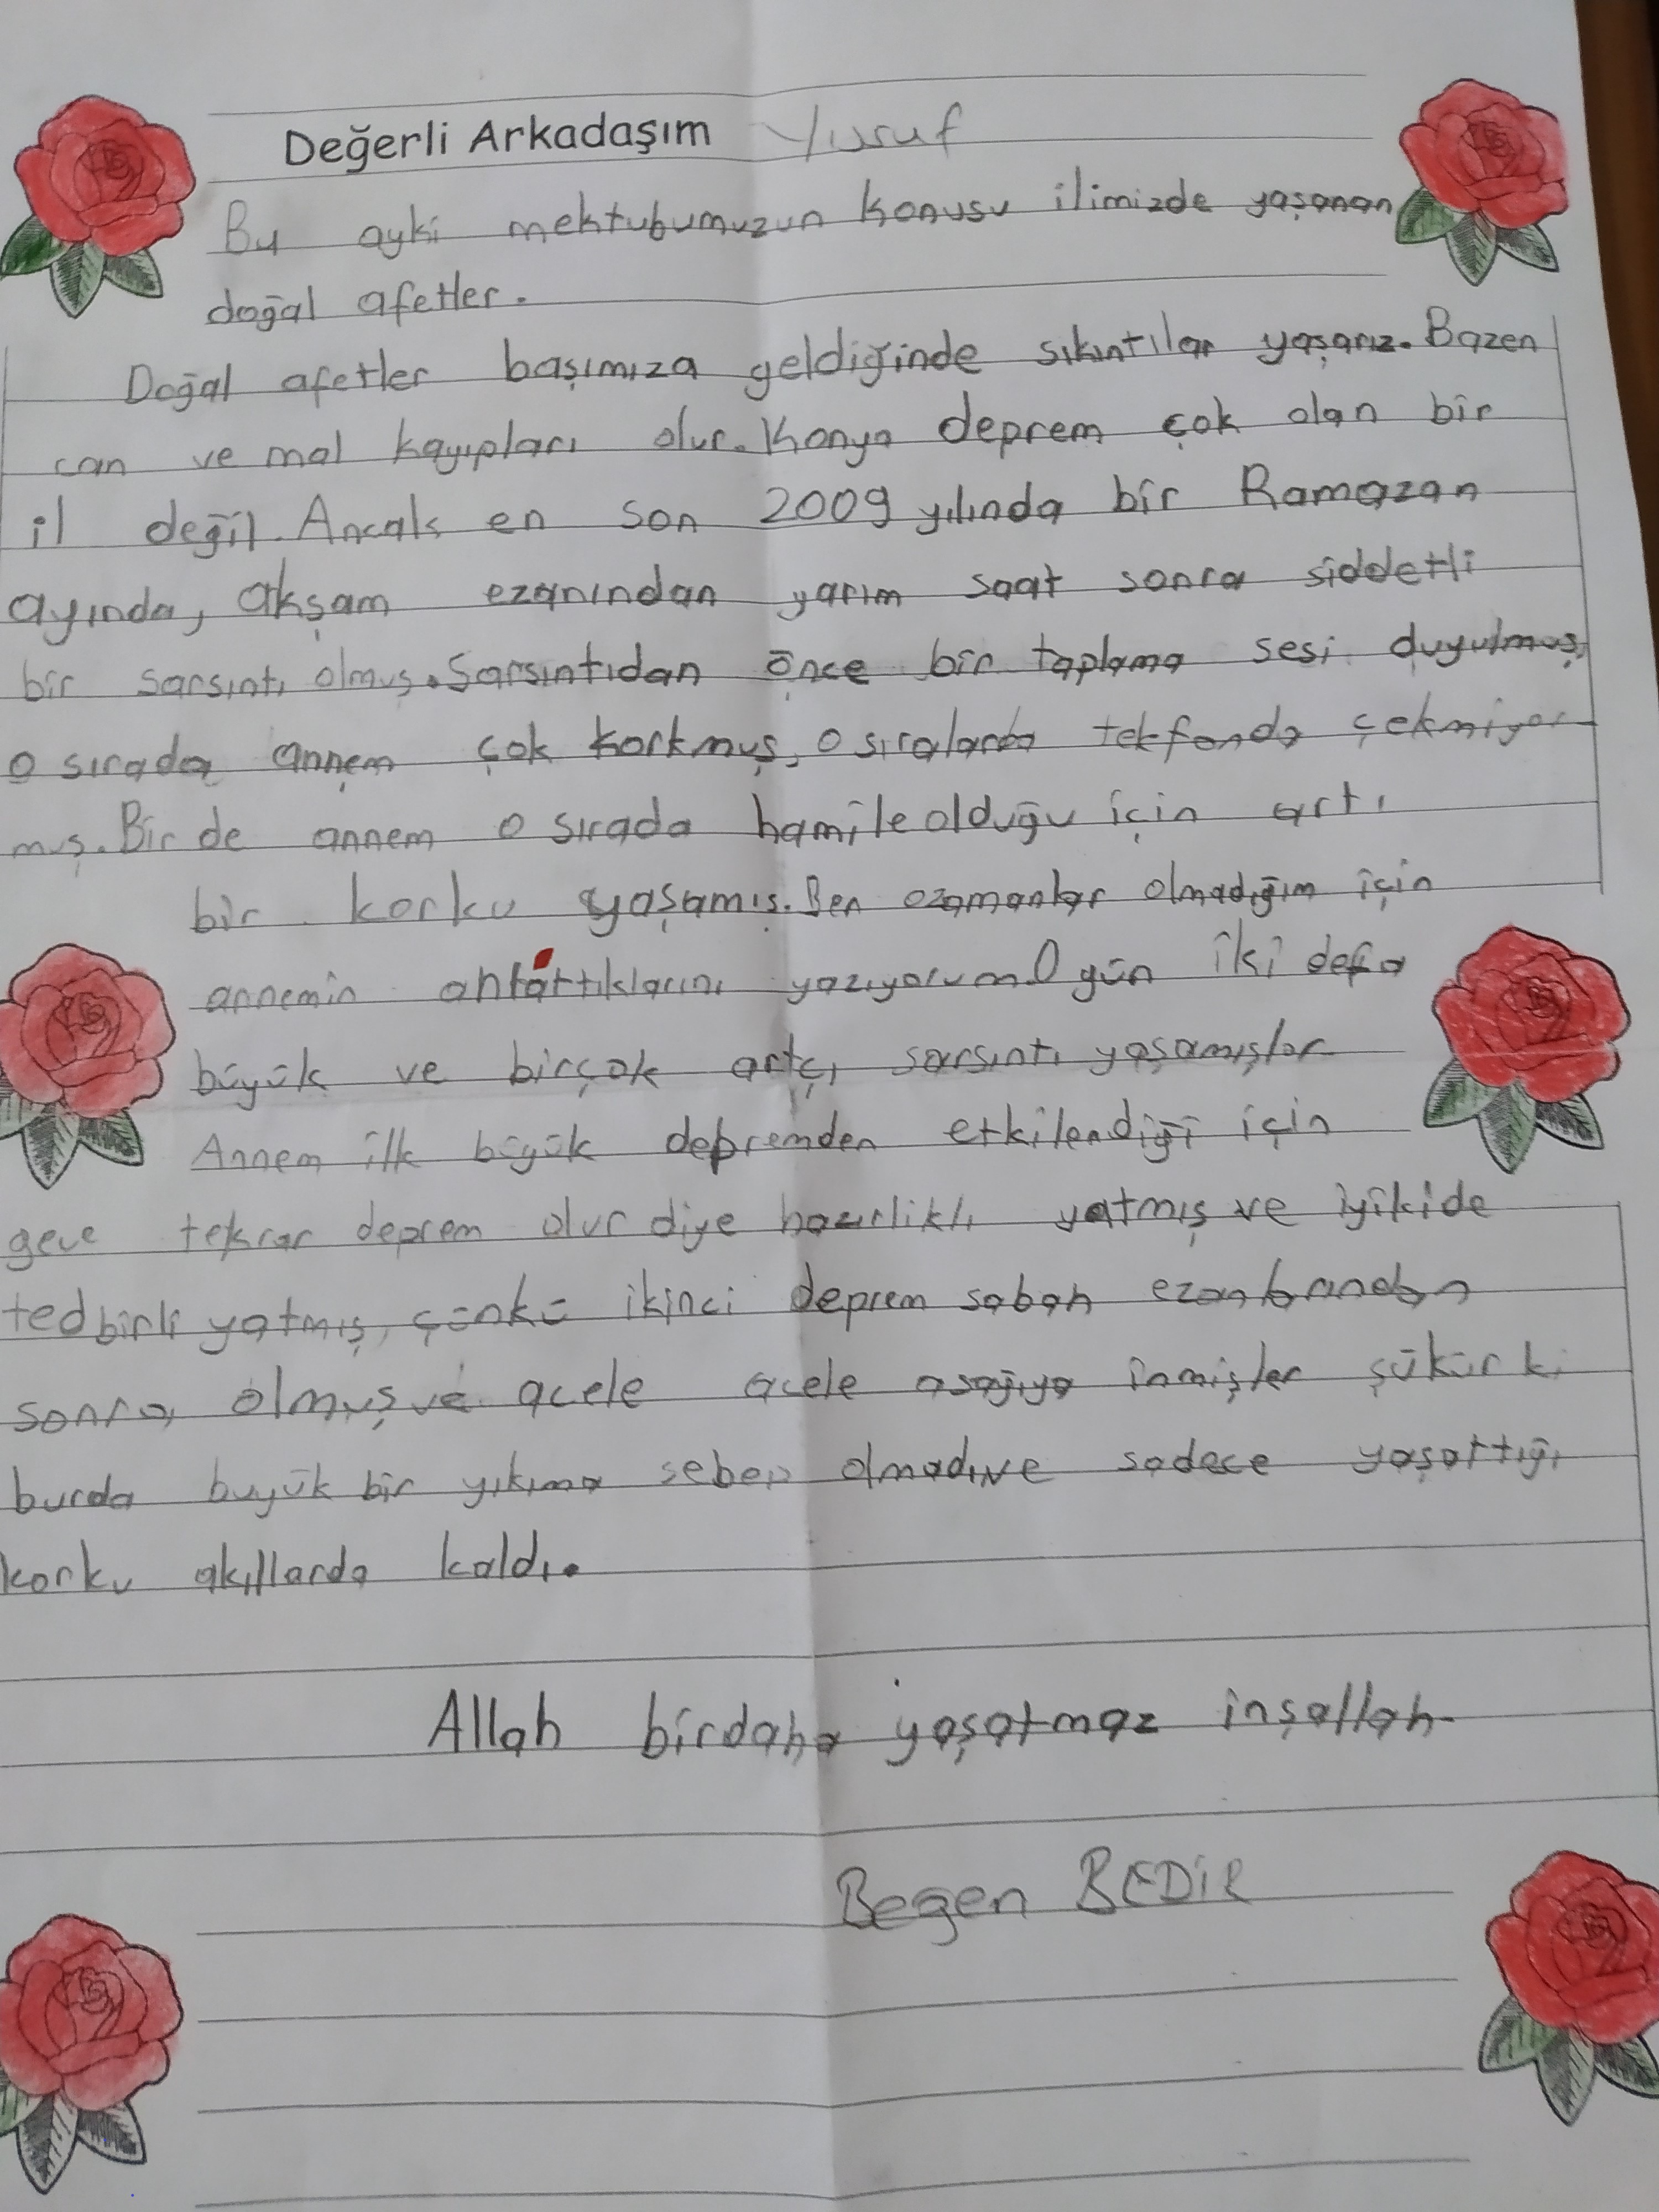 Değerli Arkadaşım Yusuf
Bu ayki mektubumuzun konusu ilimizde yaşanan
doğal afetler.
Doğal afetler başımıza geldiğinde sıkıntılar yaşarız. Bazen
can ve mal kayıpları olur. Konya deprem çok olan bir
il değil. Ancak en son 2009 yılında bir Ramazan
ayında, akşam ezanından yarım saat sonra siddetli
bir sarsıntı olmuş. Sarsıntıdan önce bir toplama sesi duyulmuş,
o sırada annem çok korkmuş, o sıralarda tekfonda çekmiyor
muş. Bir de annem o sırada hamile olduğu için artı
bir korku yaşamış. Ben ozamanlar olmadığım için
annemin anlattıklarını yazıyorum. O gün iki defa
büyük ve birçok artçı sarsıntı yaşamışlar
Annem ilk büyük depremden etkilendiği için
gece tekrar deprem olur diye hazırlıklı yatmış ve iyikide
tedbirli yatmış, çünkü ikinci deprem sabah
sonra olmuş ve acele acele asağıya inmişler şükür ki
burda buyük bir yıkıma sebep olmadı ve sadece yaşattığı
korku akıllarda kaldı.
Allah birdaha yaşatmaz inşallah
Begen BEDİR